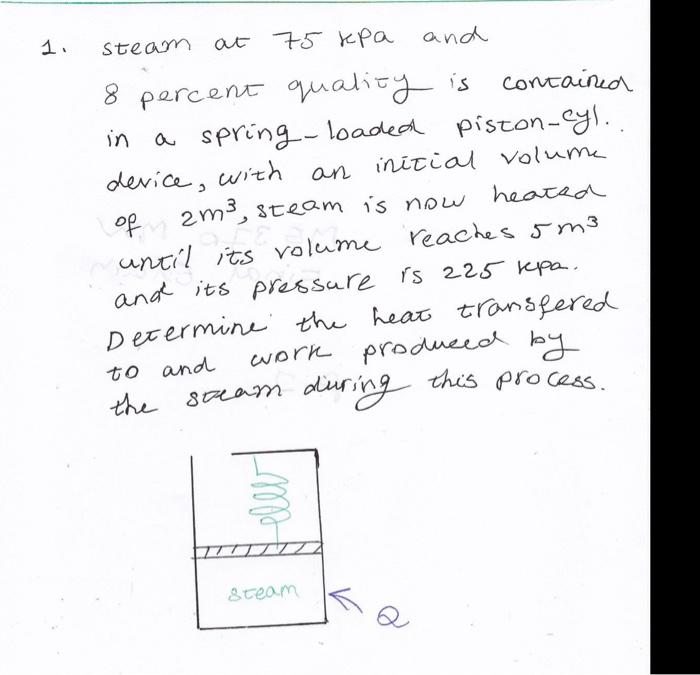 1. steam at 75 kpa and
8 percent quality is contained
in a spring-loaded piston-cyl.
device, with an initial volume
of 2m³, steam is now heated
until its volume reaches 5m³
and its pressure is 225 kpa.
Determine the heat transfered
to and work produced by
the steam during this process.
steam
Q